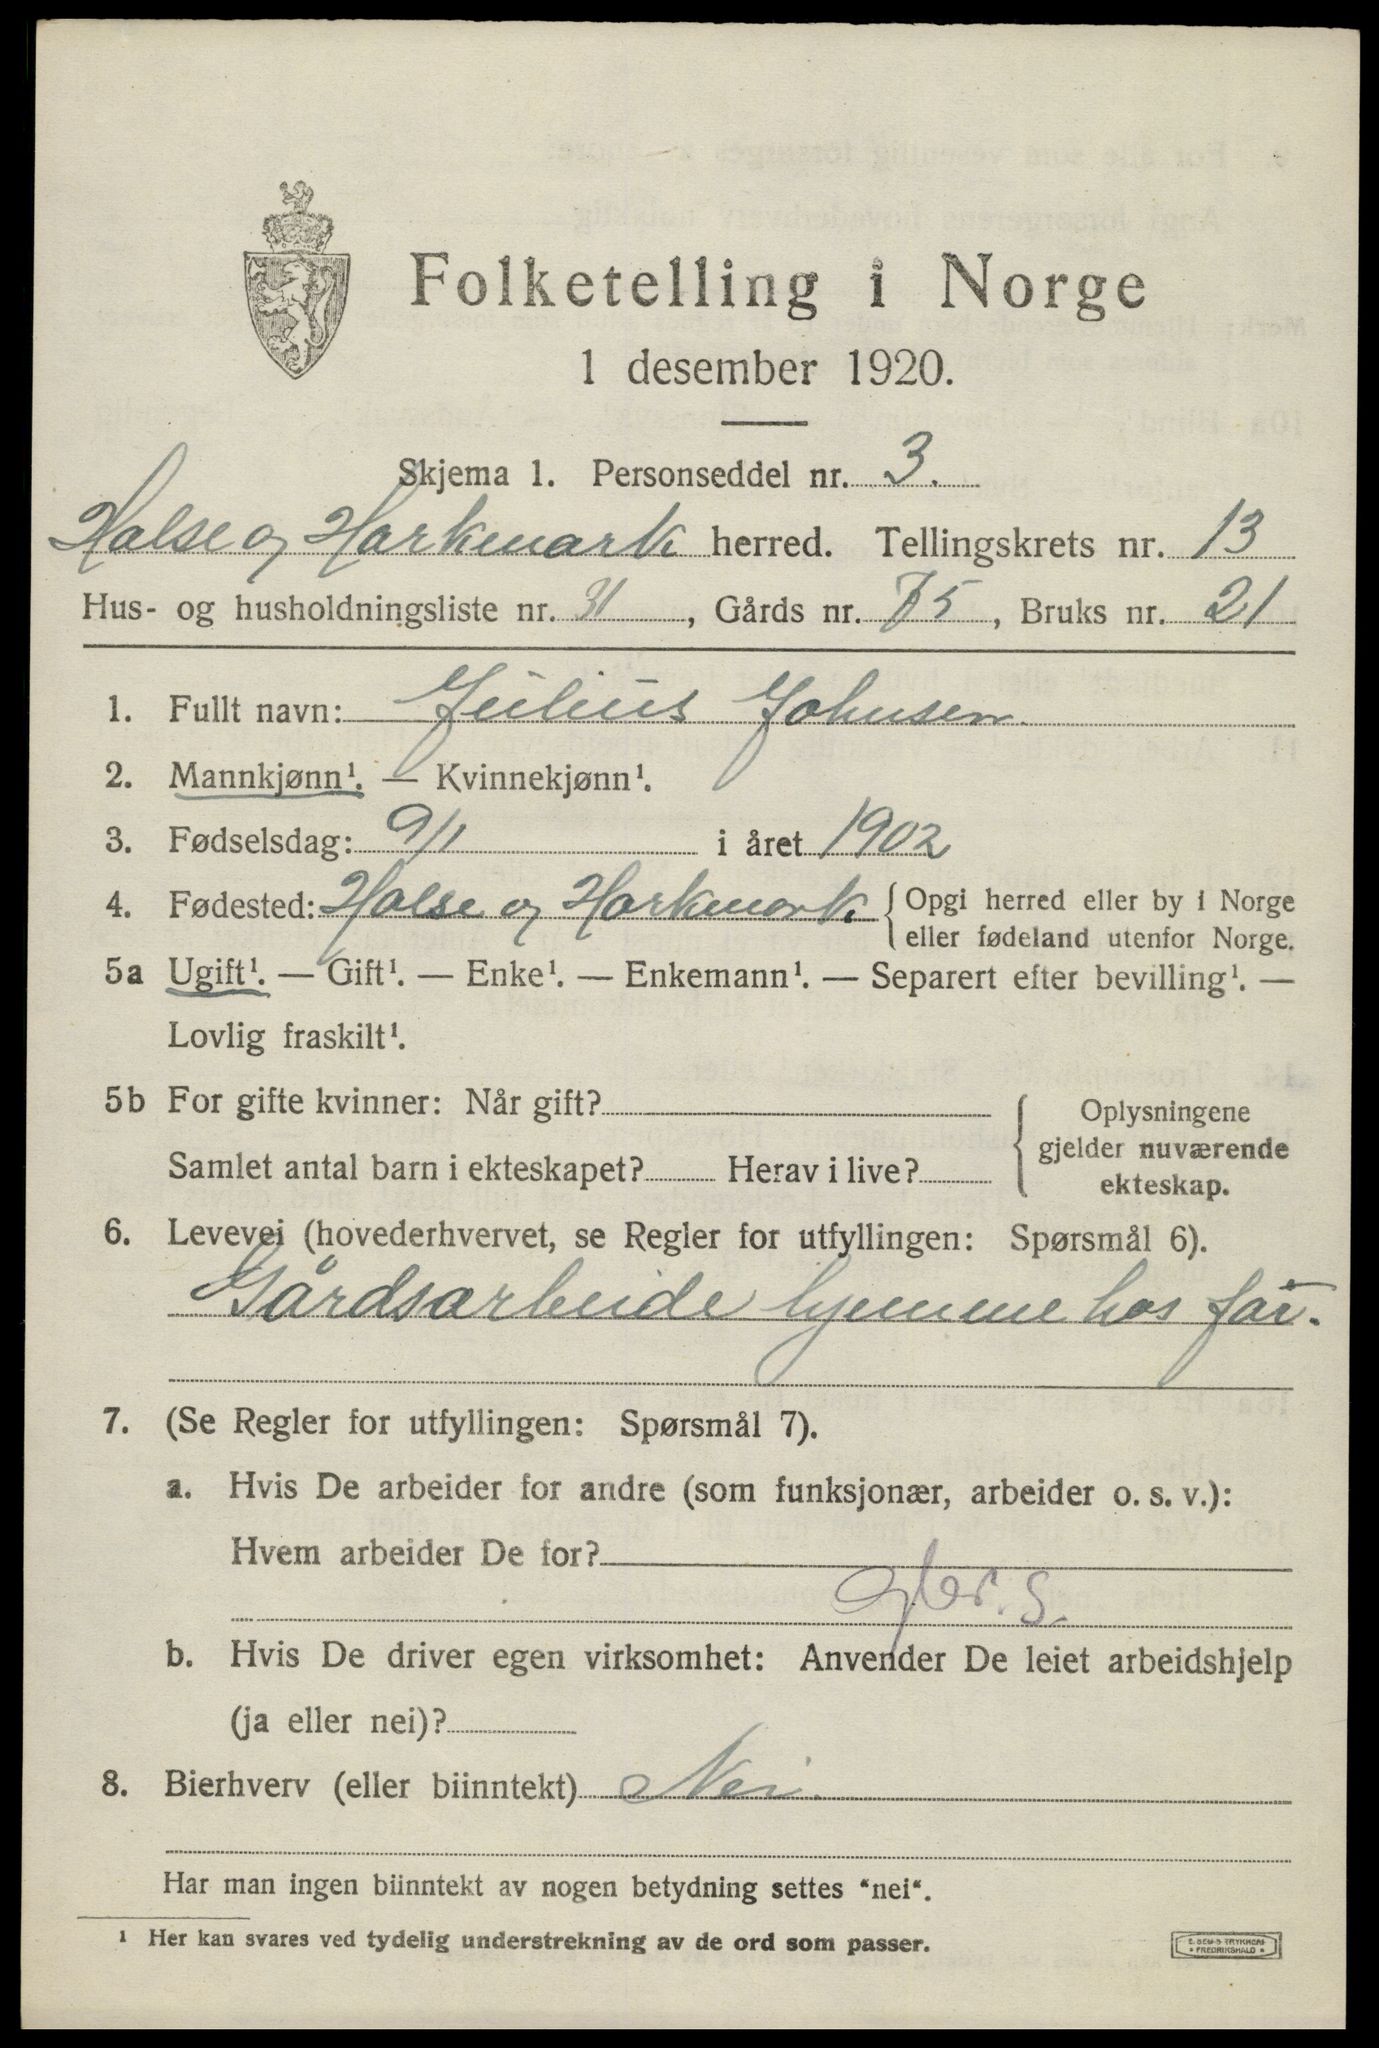 Folketelling i Norge
1 desember 1920.
Skjema 1. Personseddel nr. 3.
Halse og Harkmark herred. Tellingskrets nr. 13
Hus- og husholdningsliste nr. 31, Gårds nr. 75, Bruks nr. 21
1. Fullt navn: Julius Johnsen.
2. Mannkjønn¹. — Kvinnekjønn¹.
3. Fødselsdag: 9/1 i året 1902
4. Fødested: Halse og Harkmark { Opgi herred eller by i Norge
eller fødeland utenfor Norge.
5a Ugift¹. — Gift¹. — Enke¹. — Enkemann¹. — Separert efter bevilling¹. —
Lovlig fraskilt¹.
5b For gifte kvinner: Når gift? { Oplysningene
gjelder nuværende
Samlet antal barn i ekteskapet? Herav i live?
ekteskap.
6. Levevei (hovederhvervet, se Regler for utfyllingen: Spørsmål 6).
Gårdsarbeide hjemme hos far.
7. (Se Regler for utfyllingen: Spørsmål 7).
a. Hvis De arbeider for andre (som funksjonær, arbeider o. s. v.):
Hvem arbeider De for?
b. Hvis De driver egen virksomhet: Anvender De leiet arbeidshjelp
(ja eller nei)?
8. Bierhverv (eller biinntekt) Nei.
Har man ingen biinntekt av nogen betydning settes "nei".
¹ Her kan svares ved tydelig understrekning av de ord som passer.
E. SEM'S TRYKKERI
FREDRIKSHALD